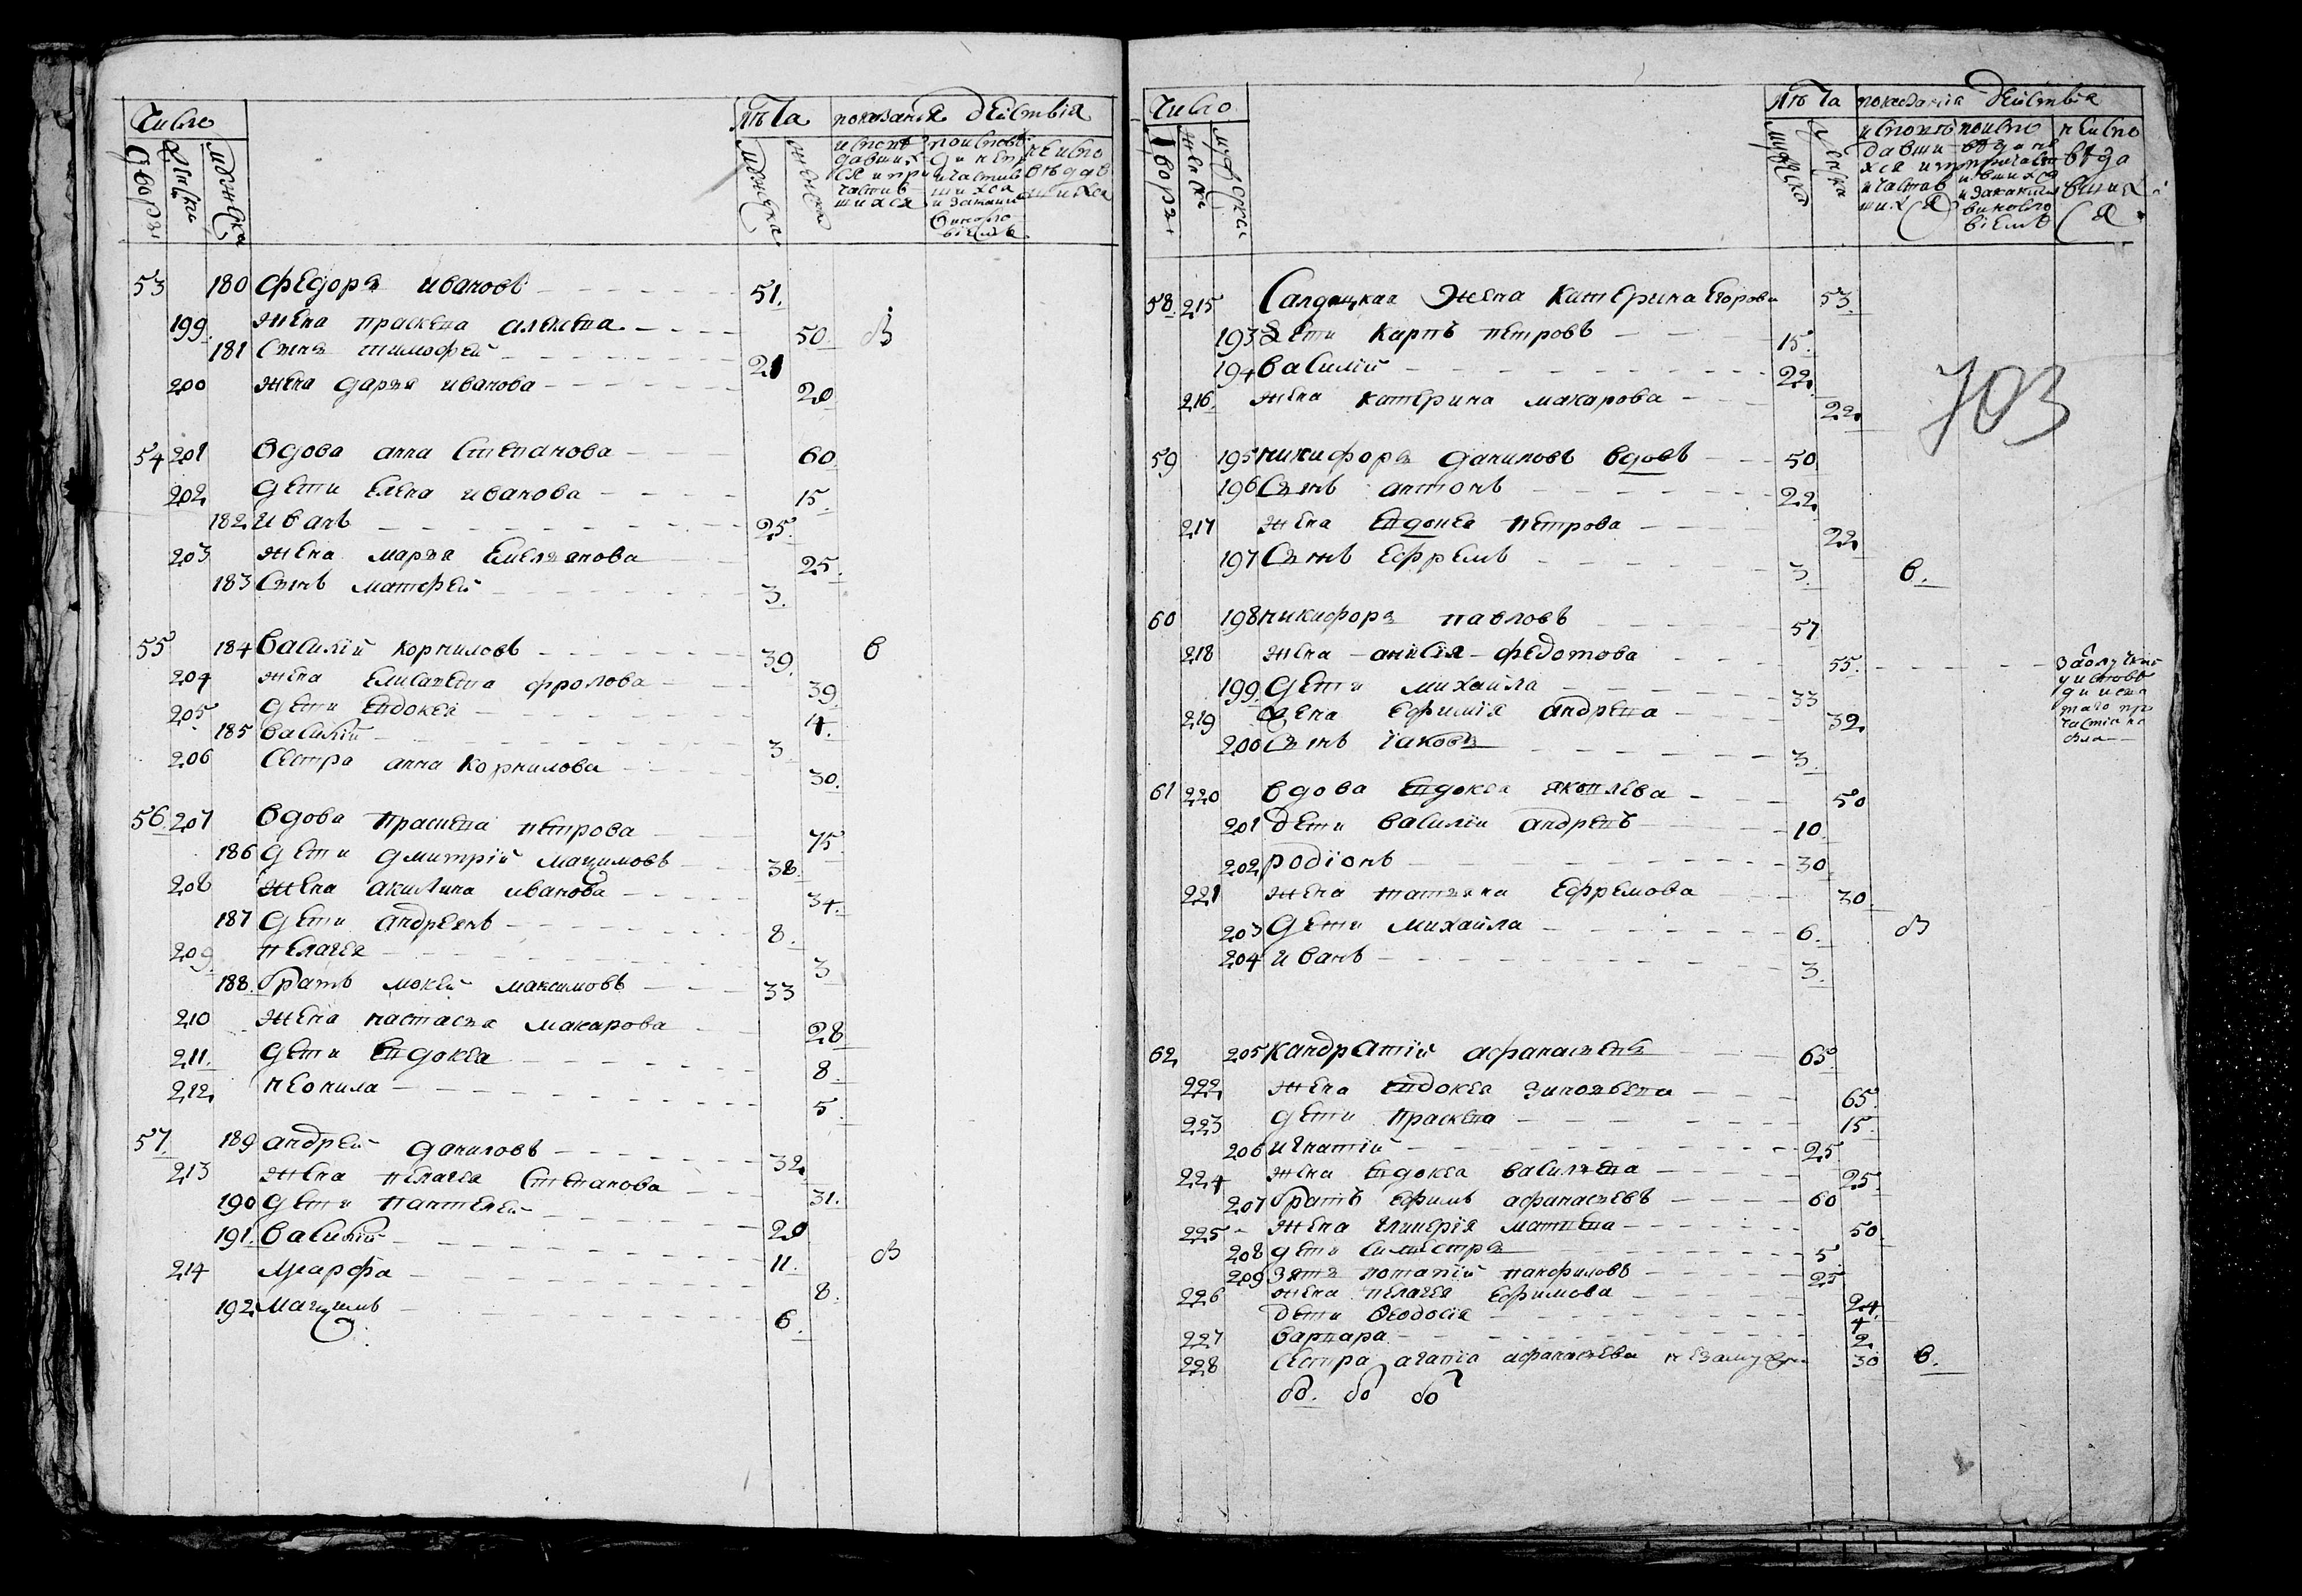 Число
лѣта показанія дѣйствія
Дворы
женска
мужска
мужска
женска
53 180 Федоръ Ивановъ 51.
199. жена Праскева Алексева 50. в
181 Сынъ Тимофей 21
200 жена Дарья Иванова 20
54 201 Вдова Анна Степанова 60
202 дети Елена Иванова 15
182. Иванъ 25.
203 жена Марья Емельянова 25.
183 Сынъ Матфей 3.
55 184 Василий Корниловъ 39. в
204 жена Елисавета Фролова 39
205 дети Евдокея 4.
185 Василий 3
206 Сестра Анна Корнилова 30.
56. 207 Вдова Праскева Петрова 75.
186 дети Дмитрий Максимовъ 38.
208 жена Акилина Иванова 34.
187 дети Андреянъ 8.
209 Пелагея 3
188. братъ Мокей Максимовъ 33
210 жена Настасья Макарова 28
211. дети Евдокея 8.
212. Неонила 5.
57. 189 Андрей Даниловъ 32.
213 жена Пелагея Степанова 31.
190 дети Пантелей 20
191. Василий 11. в
214 Марфа 8.
192 Максимъ 6.
Число
лѣта показанія дѣйствія
Дворы
женска
мужска
мужска
женска
58. 215 Салдацкая жена Катерина Егорова 53
193 дети Карпъ Петровъ 15.
194 Василій 22.
216. жена Катерина Макарова 22.
703
59 195 Никифоръ Даниловъ вдовъ 50
196 Сынъ Антонъ 22
217 жена Евдокея Петрова 22
197 Сынъ Ефремъ 3. в.
60 198 Никифоръ Павловъ 57
218 жена Анисія Федотова 55.
199. дети Михайла 33
219 жена Ефимия Андрева 32
200 Сынъ Іаковъ 3.
61 220 Вдова Евдокея Яковлева 50
201 дети Василіи Андревъ 10.
202 Родіонъ 30
221 жена Татьяна Ефремова 30.
203 дети Михайла 6. в
204 Иванъ 3.
62 205 Кандратій Афанасьевъ 65.
222 жена Евдокея Зиновьева 65
223 дети Праскева 15.
206 Игнатий 25
224 жена Евдокея Васильева 25
207 братъ Ефимъ Афанасьевъ 60
225 жена Гликерія Матвева 50.
208 дети Силивестръ 5.
209 Зять Потапій Панфиловъ 25
226 жена Пелагея Ефимова 24.
дети Феодосія 4
227 Варвара 2
228 Сестра Агапіа Афанасьева незамужня 30 в.